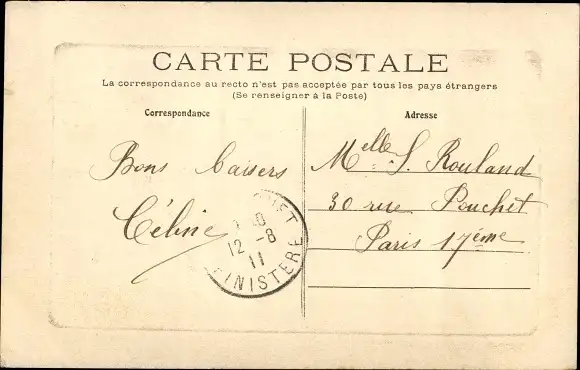 CARTE POSTALE
La correspondance au recto n'est pas acceptée par tous les pays étrangers
(Se renseigner à la Poste)
Correspondance
Adresse
Bons baisers
Céline
Melle S. Rouland
30 rue Pouchet
Paris 17ème
12 -8
11
FINISTERE